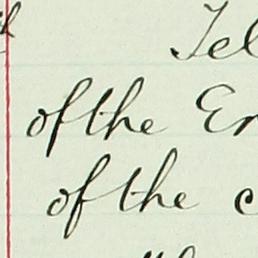 Tel
of the En
of the c